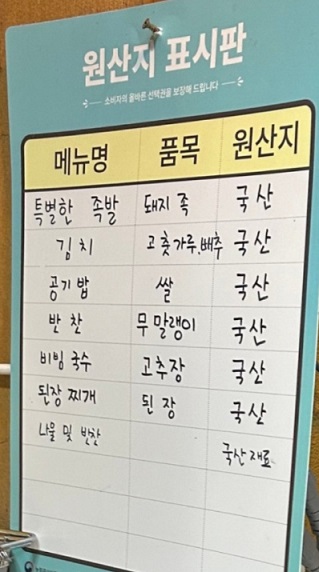 원산지 표시판
소비자의 올바른 선택권을 보장해 드립니다
메뉴명 품목 원산지
특별한 족발 돼지 족 국산
김치 고춧가루.배추 국산
공기밥 쌀 국산
반찬 무말랭이 국산
비빔국수 고추장 국산
된장찌개 된장 국산
나물 및 반찬 국산재료